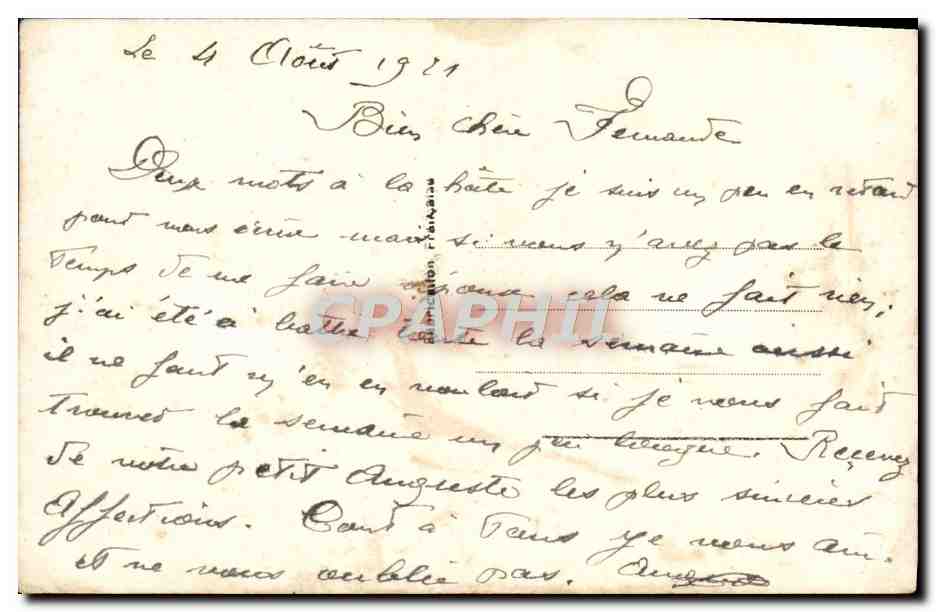 Le 4 Août 1921
Bien chère Fernande
Deux mots à la hâte je suis un peu en retard
pour vous mais si vous n'avez pas le
Temps de me faire réponse cela ne fait rien,
j'ai été à battre toute la semaine aussi
il ne faut m'en en vouloir si je vous fait
trouver la semaine un peu longue. Recevez
de votre petit Auguste les plus sincères
Affections. Tout à Vous je vous aime
et ne vous oublie pas. Auguste
Fabrication Française
CPAPHIL